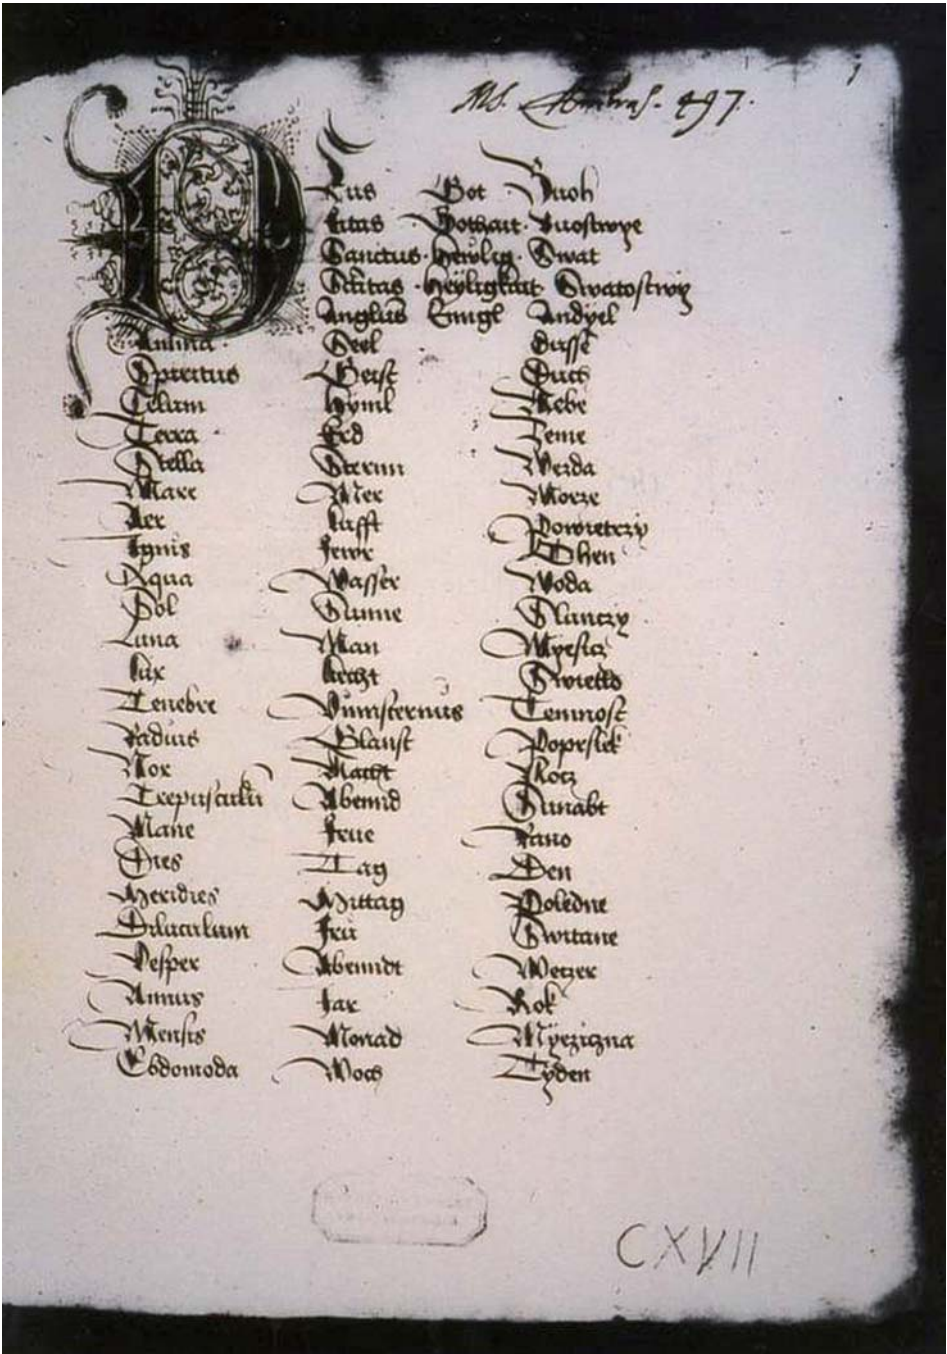 MS. Ambras. 497.
Deus Got Buoh
Deitas Gothait Buostwye
Sanctus Heylig Swat
Sctitas Heyligkait Swatostwy
Anglus Enngl Andyel
Anima Seel Dusse
Spiritus Geist Duch
Celum Hyml Nebe
Terra Erd Zeme
Stella Sternn
Mare Mer Morze
Aer Lufft Powietrzy
Ignis Fewr Ohen
Aqua Wasser Woda
Sol Sunne Slunczy
Luna Man Myesicz
Lux Liecht Swietlo
Tenebre Vinsternus Temnost
Radius Glanst Poprslek
Nox Nacht Nocz
Crepusculu Abennd Sunabt
Mane Frue Rano
Dies Tag Den
Meridies Mittag Poledne
Diluculum Fru Switane
Vesper Abenndt Weczer
Annus Jar Rok
Mensis Monad Myeziczna
Ebdomoda Woch Tyden
CXVII